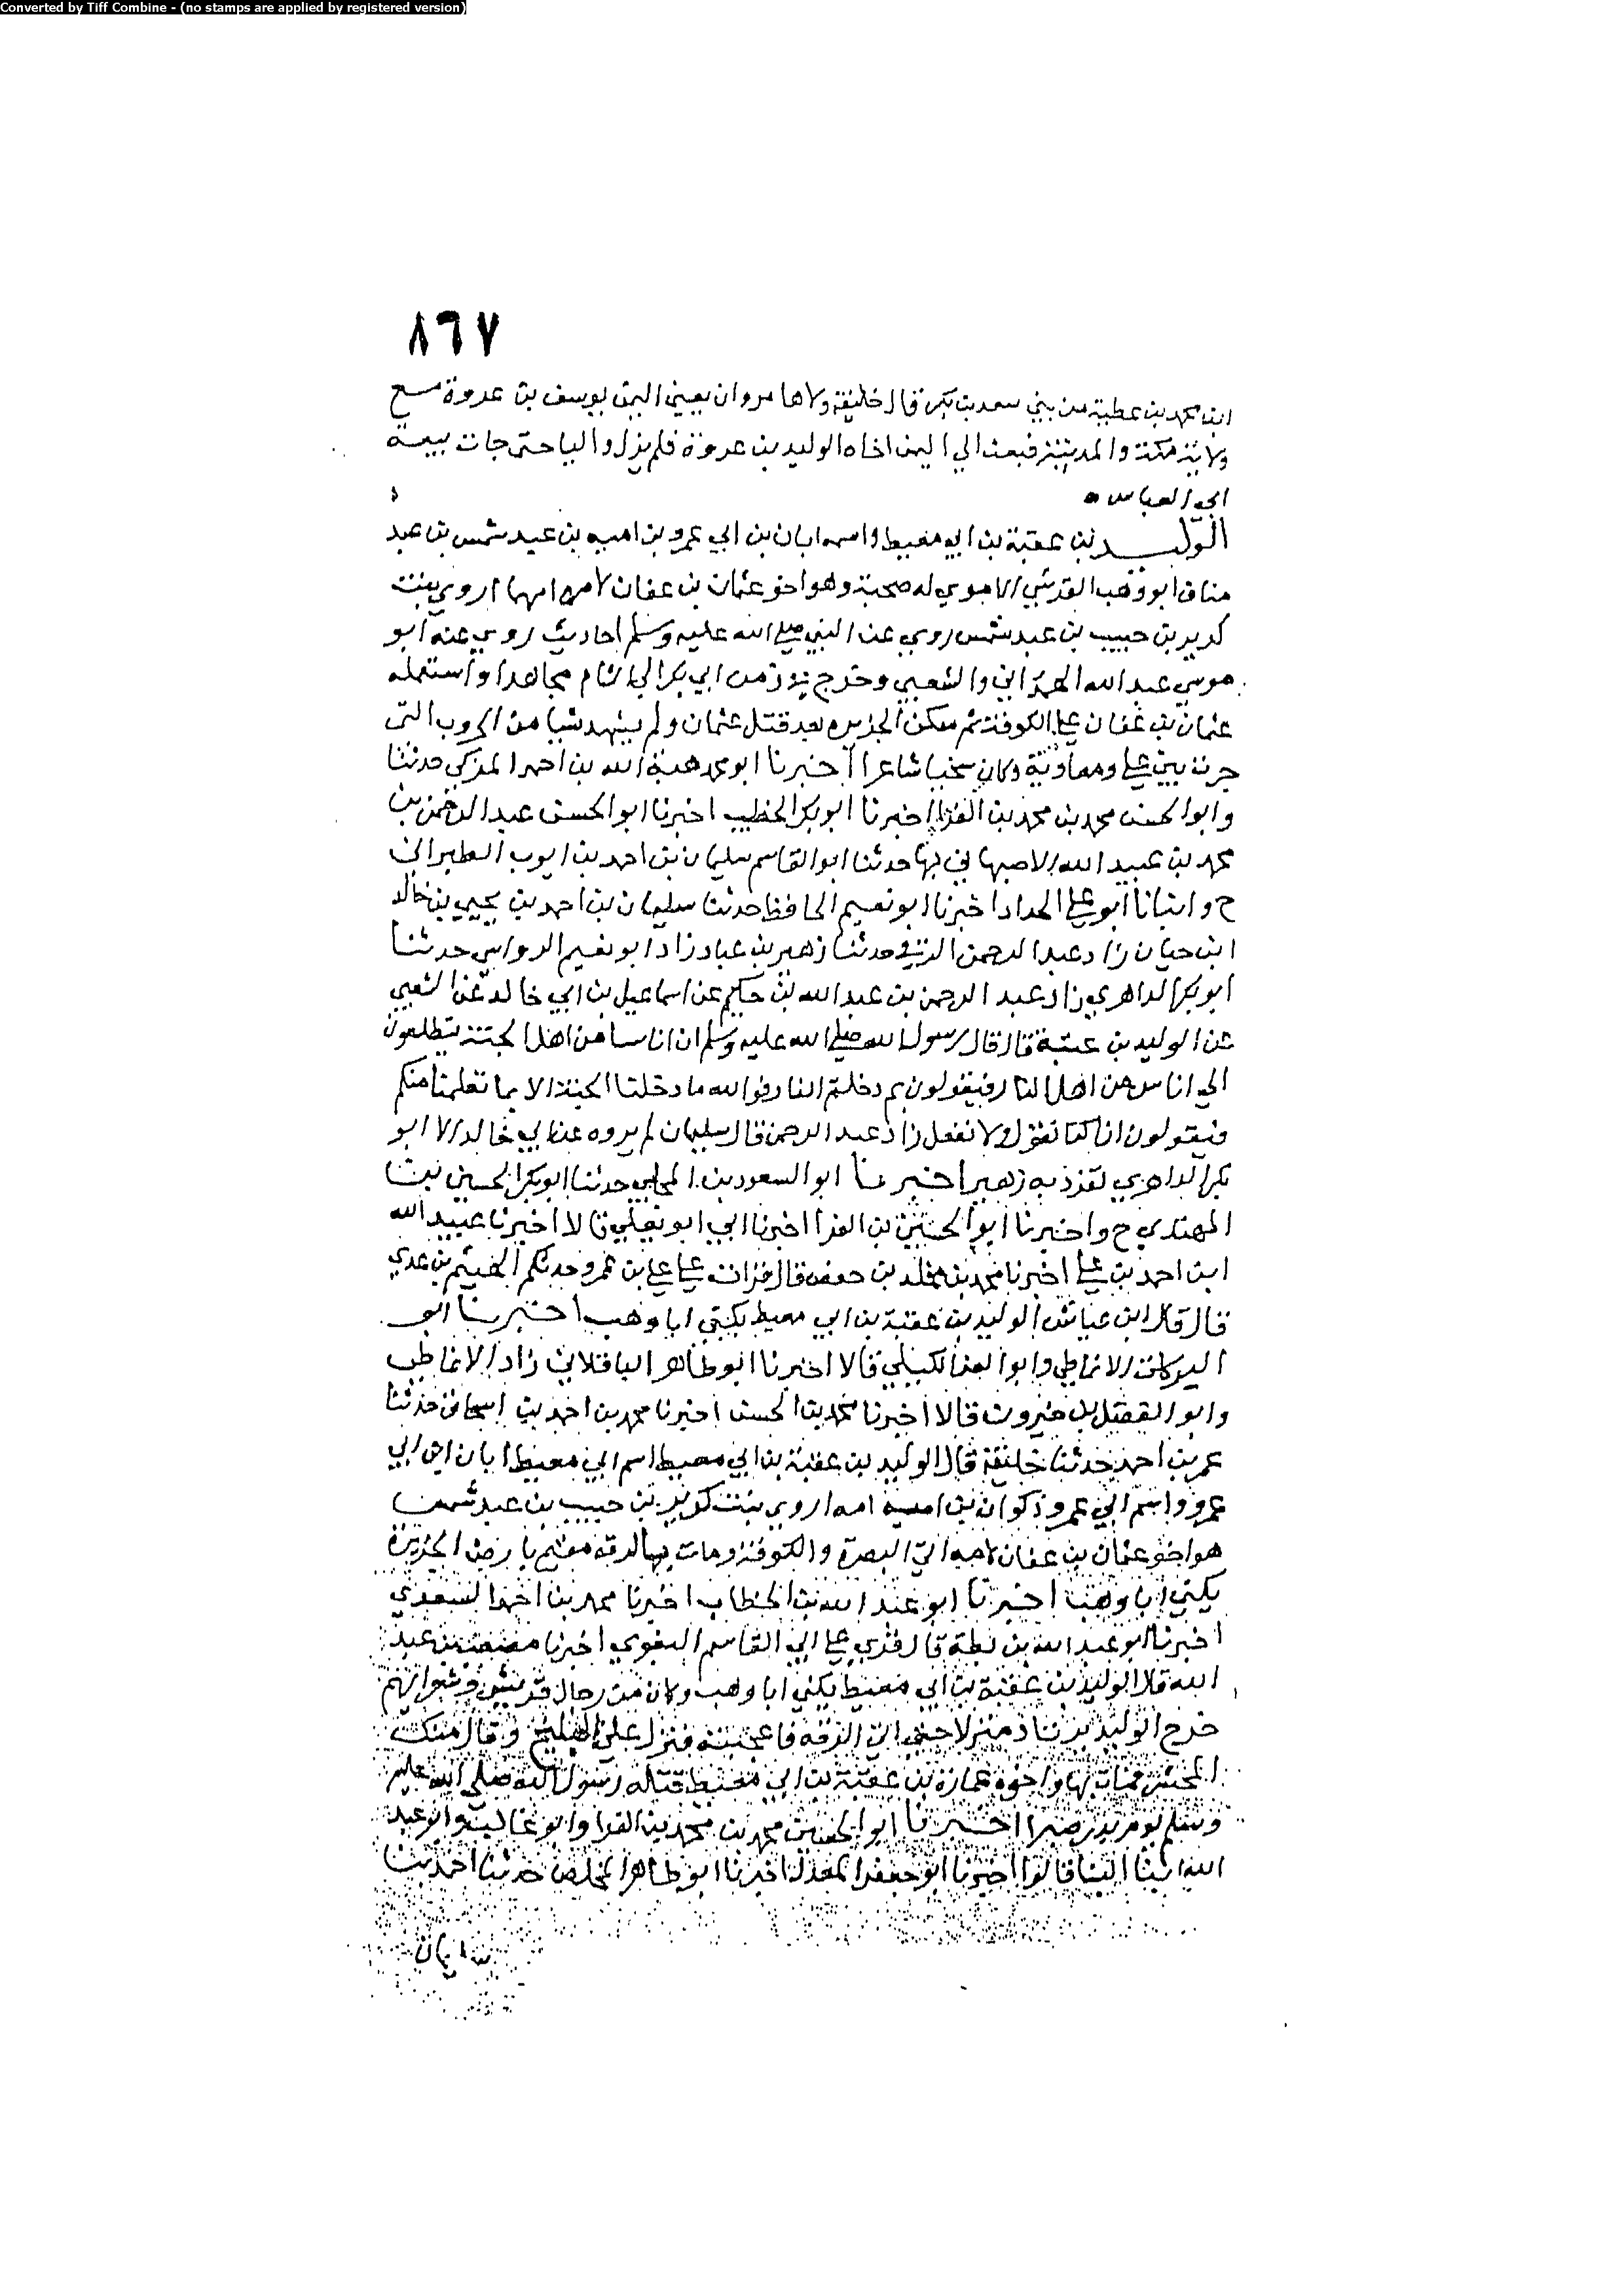 Converted by Tiff Combine - (no stamps are applied by registered version)
٨٦٧
ابن محمد بن عطية من بني سعد بن بكر قال خليفة ولاها مروان يعني اليمن يوسف بن عروة مع
ولاية مكة والمدينة فبعث الي اليمن اخاه الوليد بن عروة فلم يزل واليا حتى جات بيعة
ابي العباس ه
الوليد بن عقبة بن ابي معيط واسمه ابان بن ابي عمرو بن اميه بن عبد شمس بن عبد
مناف ابو وهب القرشي الاموي له صحبة وهو اخو عثمان بن عفان لامه امهما اروي بنت
كريز بن حبيب بن عبد شمس روي عن النبي صلى الله عليه وسلم احاديث روي عنه ابو
موسي عبد الله الهمداني والشعبي وخرج في زمن ابي بكر الي الشام مجاهدا واستعمله
عثمان بن عفان علي الكوفة ثم سكن الجزيره بعد قتل عثمان ولم يشهد شيا من الحروب التي
جرت بين علي ومعاوية وكان سخيا شاعرا اخبرنا ابو محمد هبة الله بن احمد المزكي حدثنا
وابو الحسن محمد بن محمد بن الفرا اخبرنا ابو بكر الخطيب اخبرنا ابو الحسن عبد الرحمن بن
محمد بن عبيد الله الاصبهاني بها حدثنا ابو القاسم سليمان بن احمد بن ايوب الطبراني
ح وانبانا ابو علي الحداد اخبرنا ابو نعيم الحافظ حدثنا سليمان بن احمد بن يحيي بن خالد
ابن حيان زاد عبد الرحمن الرقي حدثنا زهير بن عباد زاد ابو نعيم الرواسي حدثنا
ابو بكر الداهري زاد عبد الرحمن بن عبد الله بن حكيم عن اسماعيل بن ابي خالد عن الشعبي
عن الوليد بن عقبة قال قال رسول الله صلي الله عليه وسلم ان اناسا من اهل الجنة يتطلعون
الي اناس من اهل النار فيقولون بم دخلتم النار فوالله ما دخلنا الجنة الا بما تعلمنا منكم
فيقولون انا كنا نقول ولا نفعل زاد عبد الرحمن قال سليمان لم يروه عن ابي خالد الا ابو
بكر الداهري تفرد به زهير اخبرنا ابو السعود بن المجلي حدثنا ابو بكر الحسين بن
المهتدي ح واخبرنا ابو الحسين بن الفرا اخبرنا ابي ابو يعلي قالا اخبرنا عبيد الله
ابن احمد بن علي اخبرنا محمد بن مخلد بن حفص قال قرات علي علي بن عمرو حدثكم الهيثم بن عدي
قال قال ابن عياش الوليد بن عقبة بن ابي معيط يكني ابا وهب اخبرنا ابو
البركات الانماطي وابو العز الكيلي قالا اخبرنا ابو طاهر الباقلاني زاد الانماطي
وابو الفضل بن خيرون قالا اخبرنا محمد بن الحسن اخبرنا محمد بن احمد بن اسحاق حدثنا
عمر بن احمد حدثنا خليفة قال الوليد بن عقبة بن ابي معيط اسم ابي معيط ابان ابن ابي
عمرو واسم ابي عمرو ذكوان بن اميه امه اروي بنت كريز بن حبيب بن عبد شمس
هو اخو عثمان بن عفان لامه اتي البصرة والكوفة ومات بها لرقه مقيم بارض الجزيرة
يكني ابا وهب اخبرنا ابو عبد الله بن الخطاب اخبرنا محمد بن احمد السعدي
اخبرنا ابو عبد الله بن بطة قال قري علي ابي القاسم البغوي اخبرنا مصعب بن عبد
الله قال الوليد بن عقبة بن ابي معيط يكني ابا وهب وكان من رجال قريش وشعرائهم
خرج الوليد يرتاد منزلا حتي اتي الرقه فاعجبته فنزل علي البليخ وقال منك
المحشر فمات بها واخوه عمارة بن عقبة بن ابي معيط قتله رسول الله صلي الله عليه
وسلم يوم بدر صبرا اخبرنا ابو الحسين محمد بن محمد بن الفرا وابو غالب وابو عبد
الله ابنا البنا قالوا اخبرنا ابو جعفر المعدل اخبرنا ابو طاهر المخلص حدثنا احمد بن
سليمان